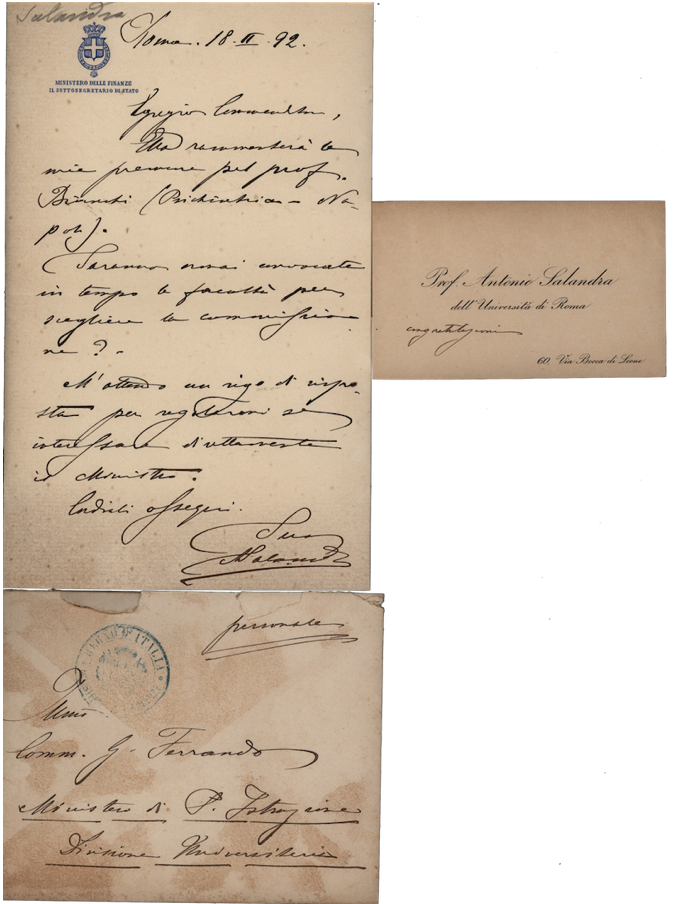 Salandra
Roma. 18. II. 92.
MINISTERO DELLE FINANZE
IL SOTTOSEGRETARIO DI STATO
Egregio Commendatore,
Ella rammenterà le
mie premure pel prof.
Bianchi (Psichiatria - Na-
poli).
Saranno ormai convocate
in tempo le facoltà per
scegliere la commissio-
ne? -
M'attendo un rigo di rispo-
sta per regolarmi se
interessare direttamente
il Ministro.
Cordiali ossequi.
Suo
ASalandra
Prof. Antonio Salandra
dell'Università di Roma
congratulazioni
60, Via Bocca di Leone
personale
REGNO D'ITALIA
Comm. G. Ferrando
Ministero di P. Istruzione
Divisione Universitaria